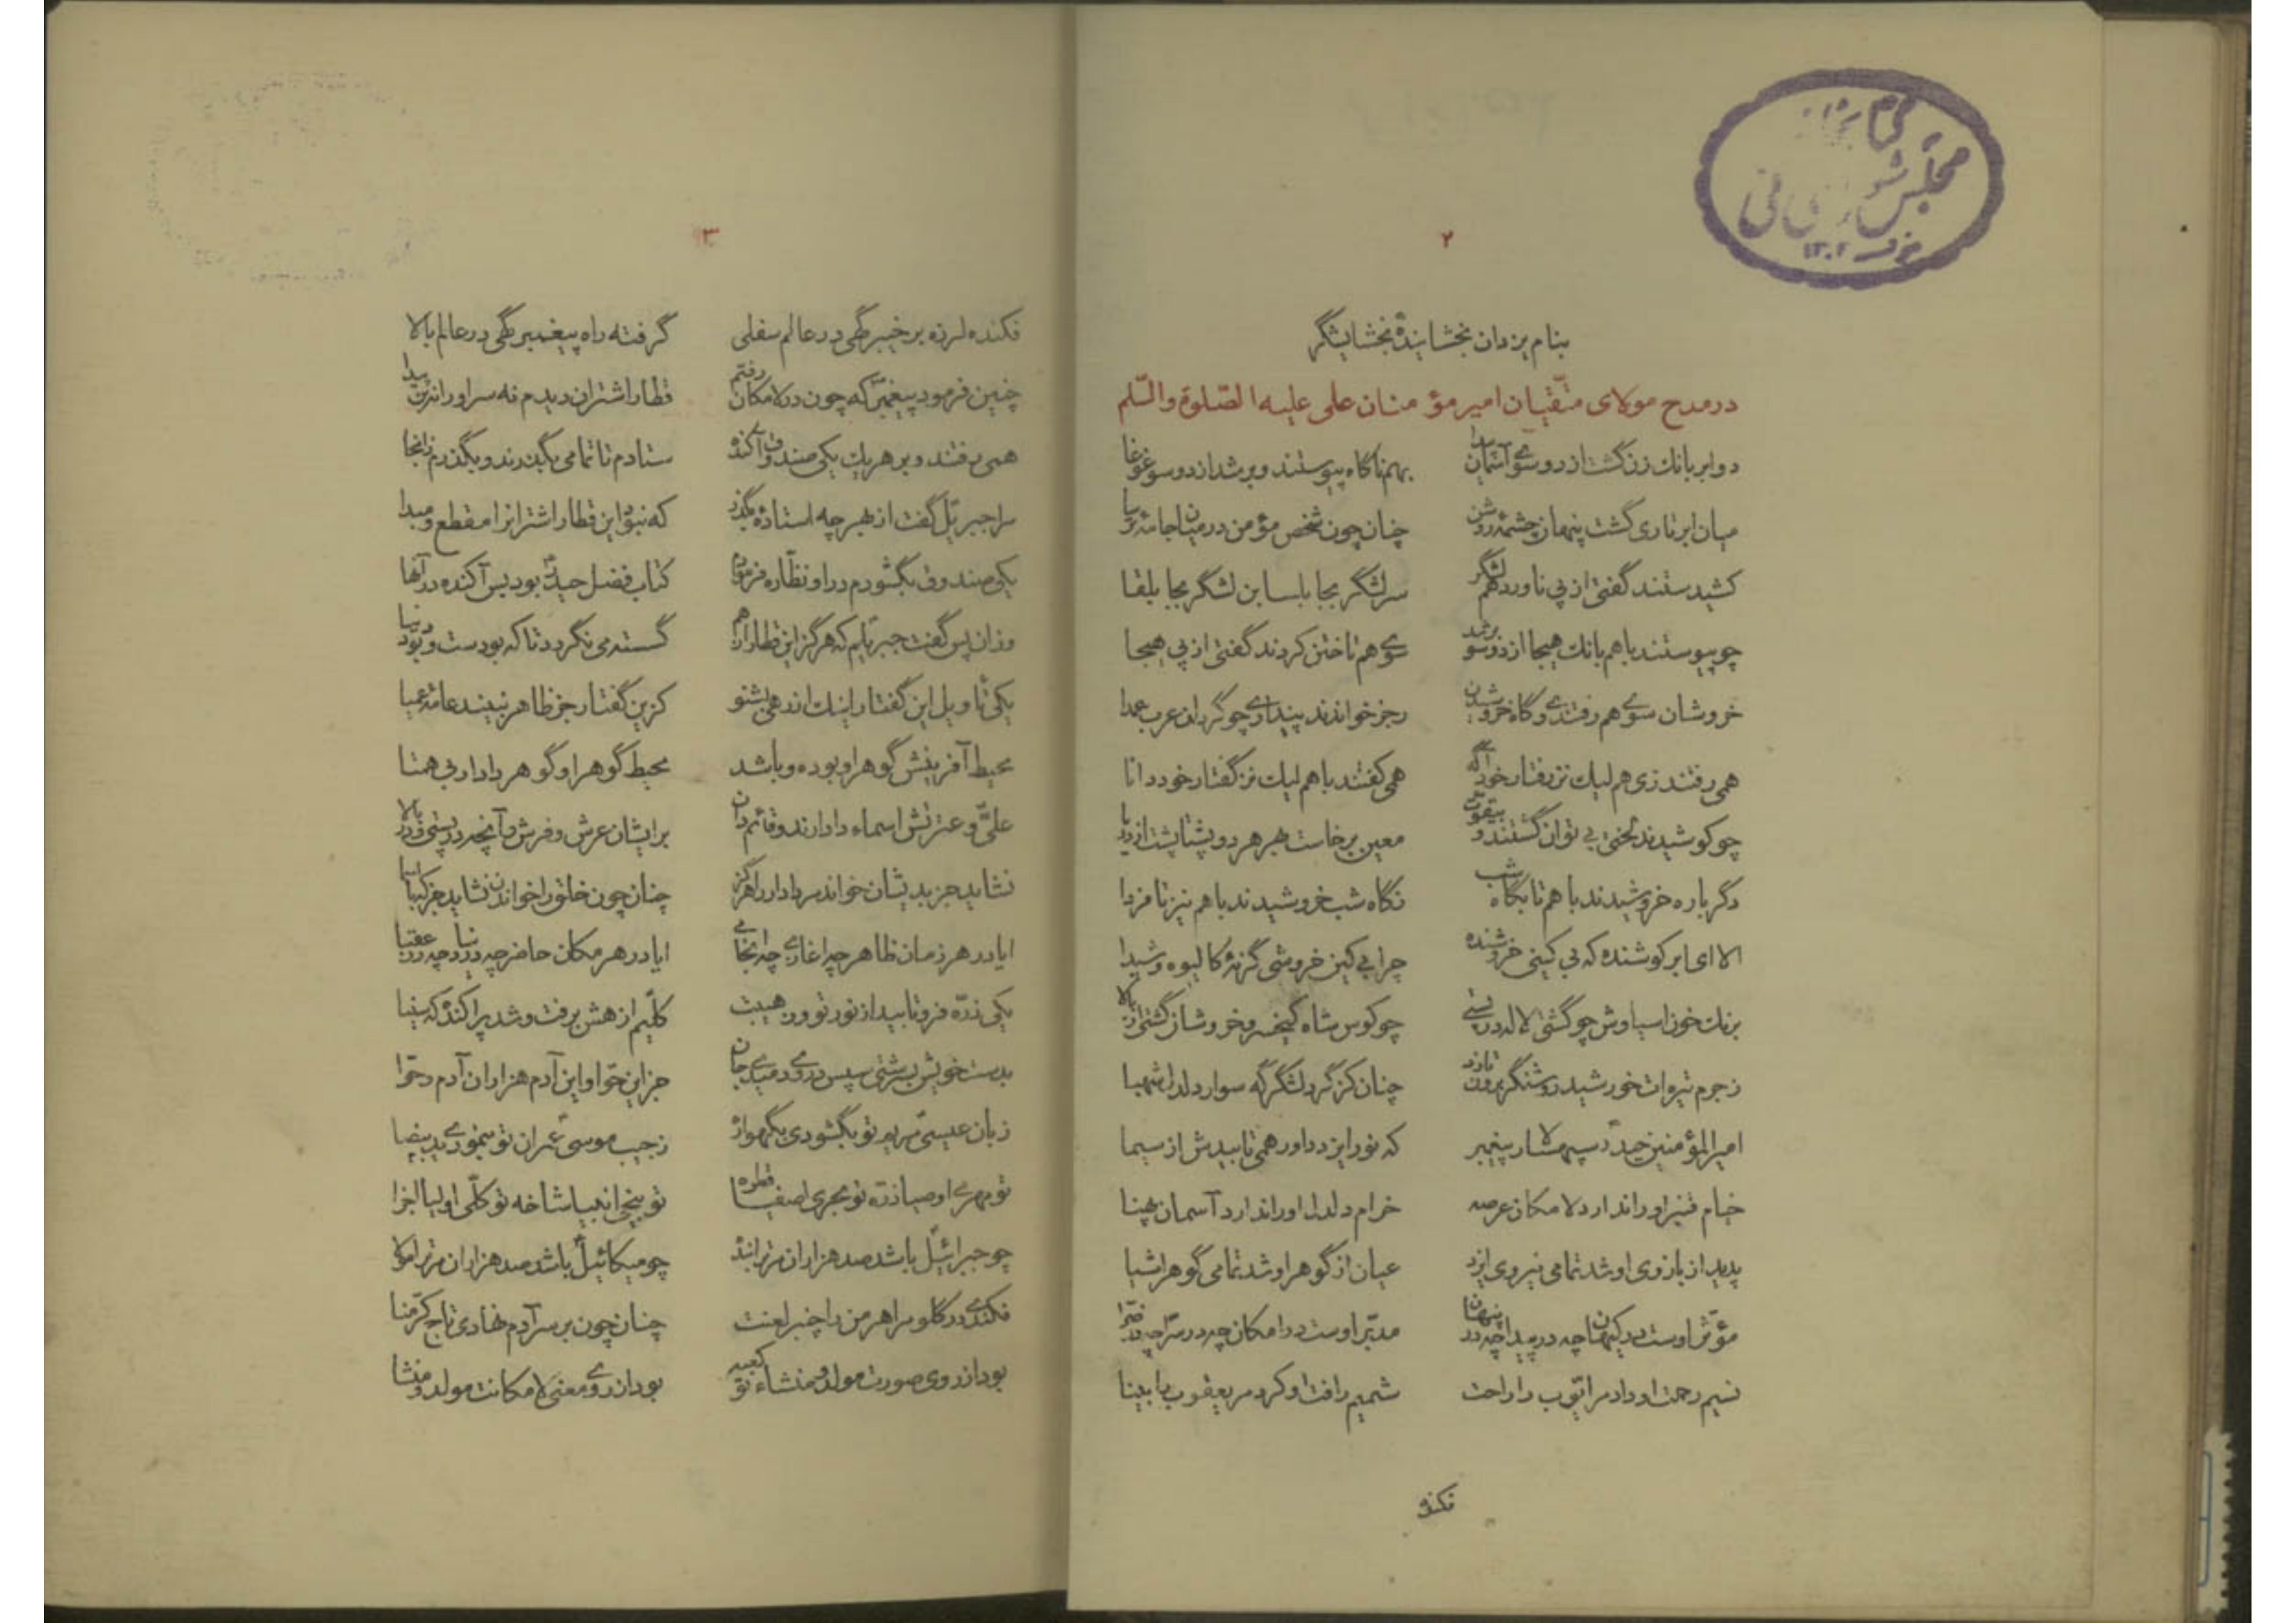 مجلس شورای ملی
۱۳۰۲
۲
بنام یزدان بخشایندهٔ بخشایشگر
در مدح مولای متقیان امیر مؤمنان علی علیه الصّلوة والسّلم
دو ابر بانك زن گشت از دو سوی آسمان پیدا بهم ناگاه پیوستند و برشد از دو سو غوغا
میان ابر تاری گشت پنهان چشمهٔ روشن چنان چون شخص مؤمن در میان جامهٔ ترسا
کشیدستند گفتی از پی ناورد هم لشگر سر لشگر بجابلسا بن لشگر بجابلقا
چو پیوستند باهم بانك هیجا از دو سو برشد سوی هم تاختن کردند گفتی از پی هیجا
خروشان سوی هم رفتندی و گاه خروشیدن رجز خواندند پنداری چو گردان عرب عمدا
همی رفتند زی هم لیك نز رفتار خود آگه همی گفتند باهم لیك نز گفتار خود دانا
چو کوشیدند لختی بی توان گشتند و بیقوّت معین برخاست بهر هر دو پشتاپشت از دریا
دگرباره خروشیدند باهم تا بگاه شب نگاه شب خروشیدند باهم نیز تا فردا
الا ای ابر کوشنده که بی کینی خروشنده چرا بی کین خروشی گرنهٔ کالیوه و شیدا
برنك خون اسیاوش چو گشتی لاله در چو کوس شاه کیخسرو خروشان گشتی از بالا
ز جرم تیره ات خورشید روشنگر برون تازد چنان کز گرد لشگرگه سوار دلدل شهبا
امیرالمؤمنین حیدر سپهسالار پیغمبر که نور ایزد داور همی تابیدش از سیما
خیام قنبر او را ندارد لامکان عرصه خرام دلدل او را ندارد آسمان پهنا
پدید از بازوی او شد تمامی نیروی ایزد عیان از گوهر او شد تمامی گوهر اشیا
مؤثر اوست در کیهان چه در پیدا چه در پنهان مدبّر اوست در امکان چه در سرّا چه در ضرّا
نسیم رحمت او داد مر ایّوب را راحت شمیم رافت او کرد مر یعقوب را بینا
فکنده
۳
فکنده لرزه بر خیبر گهی در عالم سفلی گرفته راه پیغمبر گهی در عالم بالا
چنین فرمود پیغمبر که چون در لامکان رفتم قطار اشتران دیدم نه سر او را نه بن پیدا
همی رفتند و بر هریك یکی صندوق آکنده ستادم تا تمامی بگذرند و بگذرم زانجا
مرا جبریل گفت از بهر چه استادهٔ بگذر که نبود این قطار اشترانرا مقطع و مبدا
یکی صندوق بگشودم در او نظّاره فرمودم کتاب فضل حیدر بود بس آکنده در آنها
وزان پس گفت جبریلم که هرگز این قطار از هم گسسته می نگردد تا که بودست و بود دنیا
یکی تاویل این گفتار اینك اندهلی بشنو کزین گفتار جز ظاهر نبیند عامهٔ عمیا
محیط آفرینش گوهر او بوده و باشد محیط گوهر او گوهر دادار بی همتا
علیّ و عترتش اسماء دادارند و قائم دان بر ایشان عرش و فرش و آنچه در پستی و در بالا
نشاید جز بدیشان خواند مر دادار را هرگز چنان چون خلق را خواندن نشاید جز کبا اسما
ایا در هر زمان ظاهر چه اغازی چه انجامی ایا در هر مکان حاضر چه در دنیا چه در عقبا
یکی ذرّه فرو تابید از نور تو وز هیبت کلیم از هش برفت و شد پراکنده که سینا
بدست خویش بسرشتی سپس در وی دمیدی جان جز این حوّا و این آدم هزاران آدم و حوّا
زبان عیسی مریم تو بگشودی بگهواره ز جیب موسی عمران تو بنمودی ید بیضا
تو مهری اوصیا ذرّه تو بحری اصفیا قطره تو بیخی انبیا شاخه تو کلّی اولیا اجزا
چو جبرائیل باشد صد هزاران مر ترا بنده چو میکائیل باشد صد هزاران مر ترا مولا
فکندی در گلو مر اهرمن را چنبر لعنت چنان چون بر سر آدم نهادی تاج کرّمنا
بود از روی صورت مولد و منشاء تو کعبه بود از روی معنی لامکانت مولد و منشا